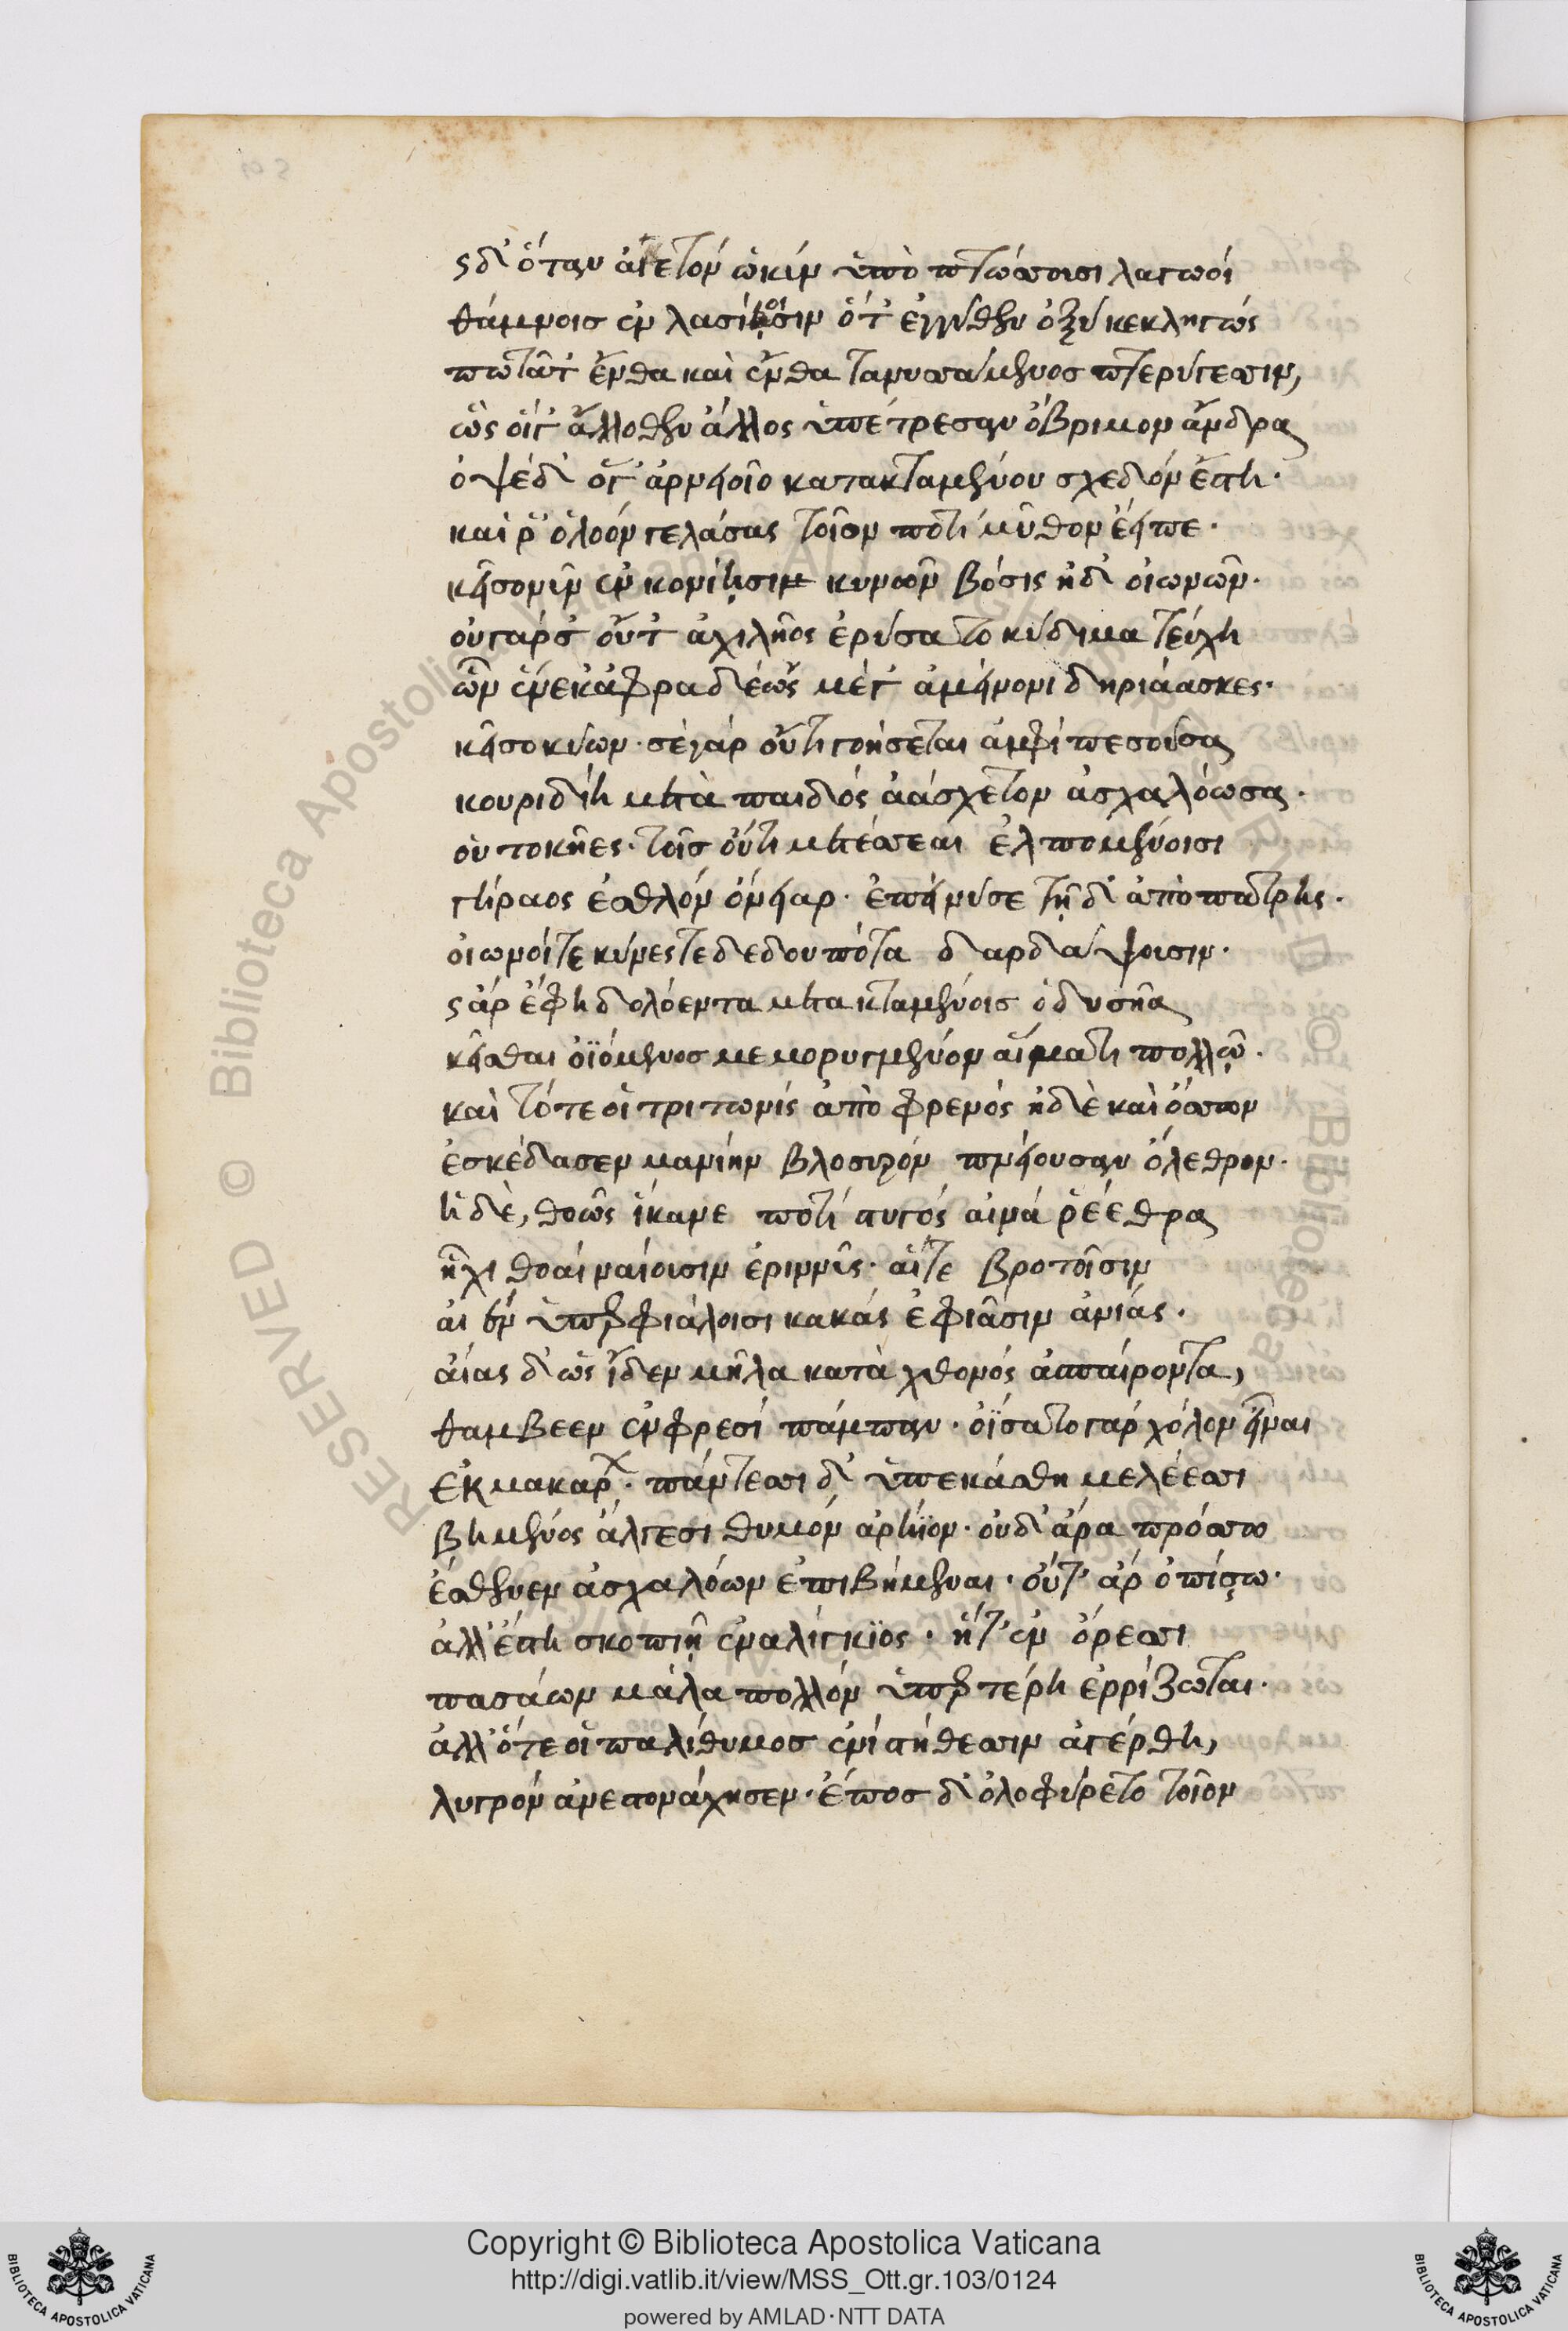 ς δ' ὅταν αἰετὸν ὠκὺν ὑπὸ πτώσσουσι λαγωοὶ
θάμνοισ ἐν λασίοισιν ὅτ' ἐγγύθεν ὀξὺ κεκληγώς
πωτᾶτ' ἔνθα καὶ ἔνθα τανυσσάμενοσ πτερύγεσσιν,
ὣς οἵγ' ἄλλοθεν ἄλλος ὑπέτρεσαν ὄβριμον ἄνδρα
ὀψὲ δ' ὅγ' ἀρνειοῖο κατακταμένου σχεδὸν ἔστη·
καὶ ῥ' ὀλοὸν γελάσας τοῖον ποτὶ μῦθον ἔειπε·
κεῖσο νῦν ἐν κονίῃσιν κυνῶν βόσις ἠδ' οἰωνῶν·
οὐ γάρ σ' οὔτ' ἀχιλῆος ἐρύσατο κύδιμα τεύχη
ὧν ἕνεκ' ἀφραδέως μέγ' ἀμείνονι δηριάασκες·
κεῖσο κύων· σὲ γὰρ οὔτι γοήσεται ἀμφιπεσοῦσα
κουριδίη μετὰ παιδὸς ἀάσχετον ἀσχαλόωσα·
οὐ τοκῆες· τοῖσ οὔτι μετέσσεαι ἐλπομένοισι
γήραος ἐσθλὸν ὄνειαρ· ἐπεί νύ σε τῇ δ' ἀπὸ πάτρης·
οἰωνοί τε κύνες τε δεδουπότα δαρδάψουσιν·
ς ἄρ ἔφη δολόεντα μετα κταμένοισ ὀδυσῆα
κεῖσθαι ὀϊόμενοσ μεμορυγμένον αἵματι πολλῷ·
καὶ τότε οἱ τριτωνίς ἀπὸ φρενός ἠδὲ καὶ ὄσσων
ἐσκέδασεν μανίην βλοσυρὸν πνείουσαν ὄλεθρον·
ἡ δὲ, θοῶς ἵκανε ποτὶ στυγός αἰνά ῥέεθρα
ἧχι θοαὶ ναίουσιν ἐριννῦς· αἵτε βροτοῖσιν
αἰὲν ὑπερφιάλοισι κακάς ἐφιᾶσιν ἀνίας·
αἴας δ' ὡς ἴδεν μῆλα κατὰ χθονός ἀσπαίροντα,
θάμβεεν ἐν φρεσὶ πάμπαν· ὀΐσατο γάρ χόλον εἶναι
ἐκ μακάρων· πάντεσσι δ' ὑπεκλάσθη μελέεσσι
βλημένος ἄλγεσι θυμὸν ἀρήϊον· οὐδ' ἄρα πρόσσω
ἔσθενεν ἀσχαλόων ἐπιβήμεναι· οὔτ' ἄρ ὀπίσσω·
ἀλλ' ἔστη σκοπιῇ ἐναλίγκιος· ἥτ' ἐν ὄρεσσι
πασάων μάλα πολλὸν ὑπερτέρη ἐρρίζωται·
ἀλλ' ὅτε οἱ παλίθυμοσ ἐνὶ στήθεσσιν ἀγέρθη,
λυγρὸν ἀνεστονάχησεν· ἔπος δ' ὀλοφύρετο τοῖον
Copyright © Biblioteca Apostolica Vaticana
http://digi.vatlib.it/view/MSS_Ott.gr.103/0124
powered by AMLAD·NTT DATA